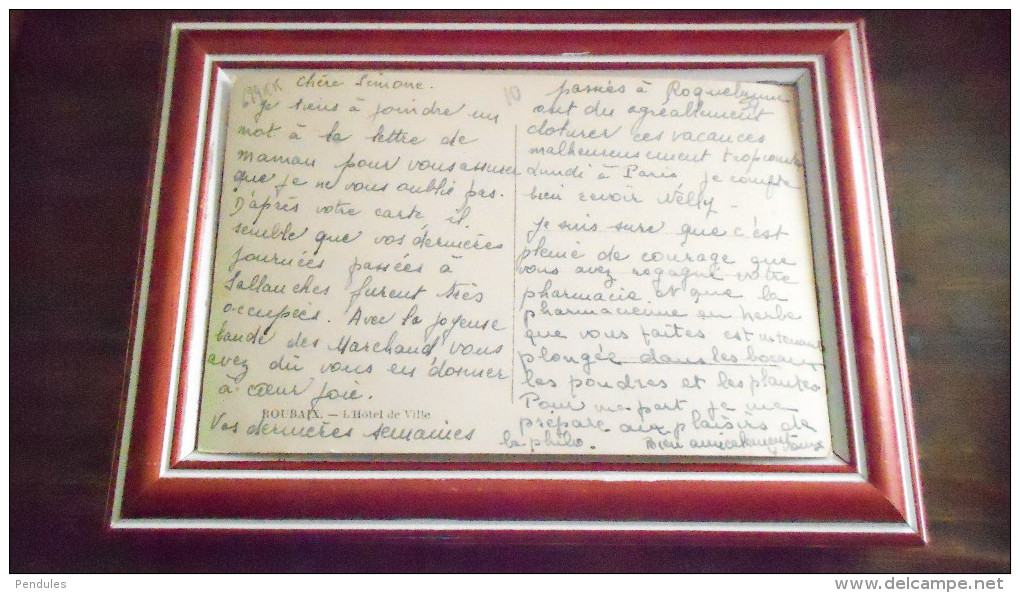 Chère Simone.
Je tiens à joindre un
mot à la lettre de
maman pour vous assurer
que je ne vous oublie pas.
D'après votre carte, il
semble que vos dernières
journées passées à
Sallanches furent très
occupées. Avec la joyeuse
bande des Marchand vous
avez dû vous en donner
à cœur joie.
ROUBAIX. — L'Hôtel de Ville
Vos dernières semaines
10
passées à Roquebrune
ont du agréablement
cloturer ces vacances
malheureusement trop courtes
Lundi à Paris je compte
bien revoir Nelly -
Je suis sure que c'est
pleine de courage que
vous avez regagné votre
pharmacie et que la
pharmacienne en herbe
que vous faites est
plongée dans les bocaux
les poudres et les plantes
Pour ma part je me
prépare aux plaisirs de
la philo. Bien amicalement
Pendules
www.delcampe.net